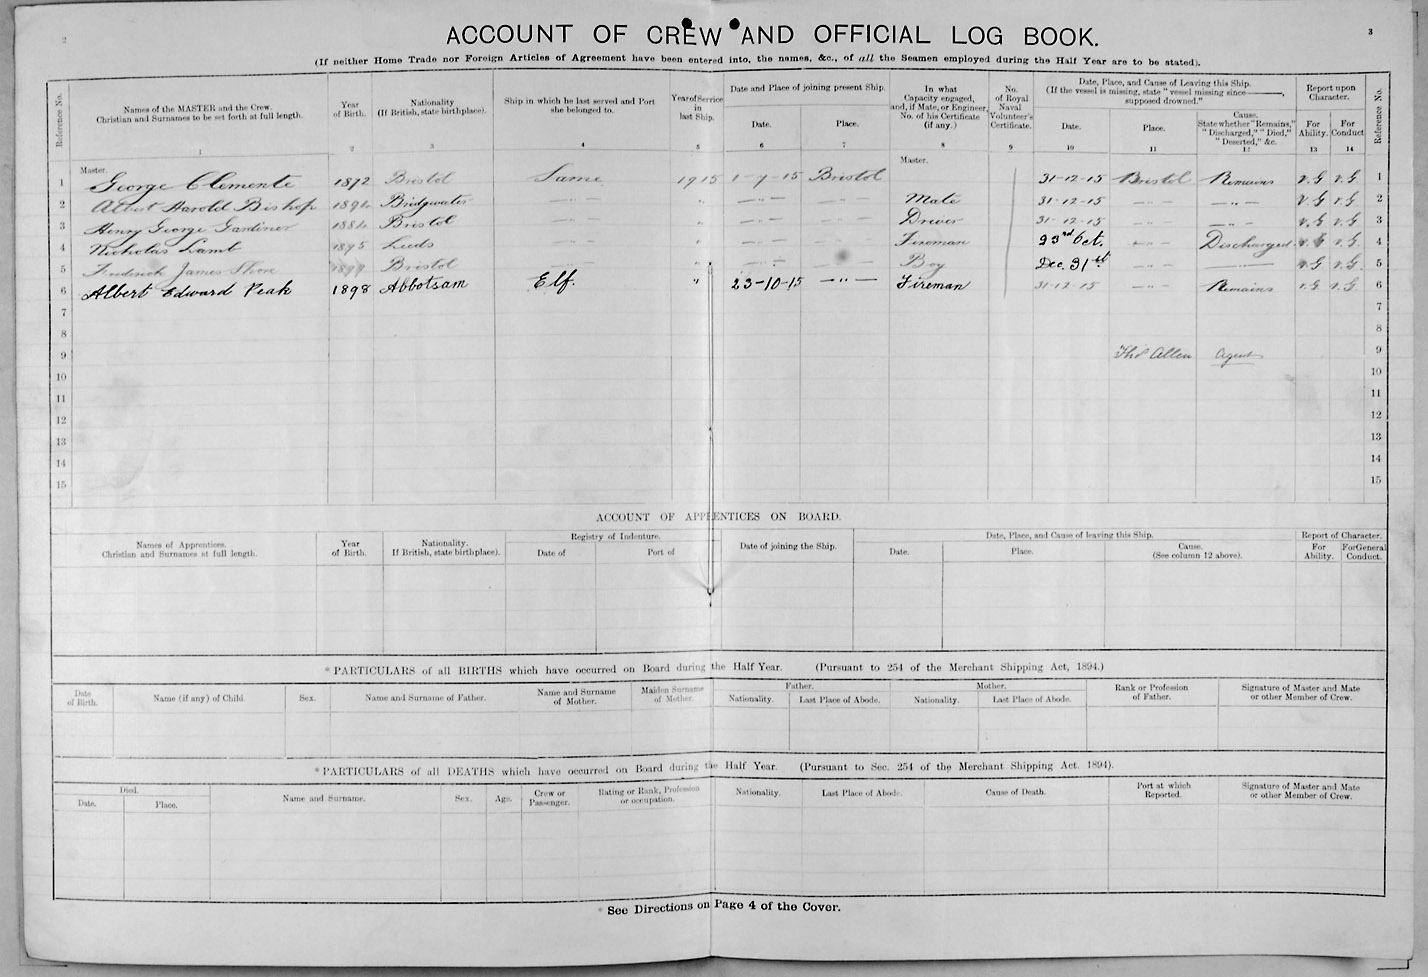 2
3
ACCOUNT OF CREW AND OFFICIAL LOG BOOK.
(If neither Home Trade nor Foreign Articles of Agreement have been entered into, the names, &c., of all the Seamen employed during the Half Year are to be stated).
Reference No. Names of the MASTER and the Crew. Christian and Surnames to be set forth at full length. Year of Birth. Nationality (If British, state birthplace). Ship in which he last served and Port she belonged to. Year of Service in last Ship. Date and Place of joining present Ship. Date. Place. In what Capacity engaged, and, if Mate, or Engineer, No. of his Certificate (if any.) No. of Royal Naval Volunteer's Certificate. Date, Place, and Cause of Leaving this Ship. (If the vessel is missing, state "vessel missing since ———, supposed drowned." Date. Place. Cause. State whether "Remains," "Discharged," "Died," "Deserted," &c. Report upon Character. For Ability. For Conduct Reference No.
1 2 3 4 5 6 7 8 9 10 11 12 13 14
Master. Master.
1 George Clements 1872 Bristol Same 1915 1-7-15 Bristol 31-12-15 Bristol Remains V.G V.G 1
2 Albert Harold Bishop Bridgwater —"— " —"— —"— Mate 31-12-15 —"— —"— V.G V.G 2
3 Henry George Gardiner Bristol —"— " —"— —"— Driver 31-12-15 —"— —"— V.G V.G 3
4 Nicholas Lamb 1895 Leeds —"— " —"— —"— Fireman 23rd Oct. —"— Discharged V.G V.G. 4
5 Frederick James Bristol —"— " —"— —"— Boy Dec. 31st —"— —"— V.G V.G. 5
6 Albert Edward Peak 1898 Abbotsam Elf. " 23-10-15 —"— Fireman 31-12-15 —"— Remains V.G V.G. 6
7 7
8 8
9 Thos Allen Agent 9
10 10
11 11
12 12
13 13
14 14
15 15
ACCOUNT OF APPRENTICES ON BOARD.
Names of Apprentices. Christian and Surnames at full length. Year of Birth. Nationality. If British, state birthplace). Registry of Indenture. Date of Port of Date of joining the Ship. Date, Place, and Cause of leaving this Ship. Date. Place. Cause. (See column 12 above). Report of Character. For Ability. For General Conduct.
*PARTICULARS of all BIRTHS which have occurred on Board during the Half Year. (Pursuant to 254 of the Merchant Shipping Act, 1894.)
Date of Birth. Name (if any) of Child. Sex. Name and Surname of Father. Name and Surname of Mother. Maiden Surname of Mother. Father. Nationality. Last Place of Abode. Mother. Nationality. Last Place of Abode. Rank or Profession of Father. Signature of Master and Mate or other Member of Crew.
*PARTICULARS of all DEATHS which have occurred on Board during the Half Year. (Pursuant to Sec. 254 of the Merchant Shipping Act. 1894).
Died. Date. Place. Name and Surname. Sex. Age. Crew or Passenger. Rating or Rank, Profession or occupation. Nationality. Last Place of Abode. Cause of Death. Port at which Reported. Signature of Master and Mate or other Member of Crew.
* See Directions on Page 4 of the Cover.